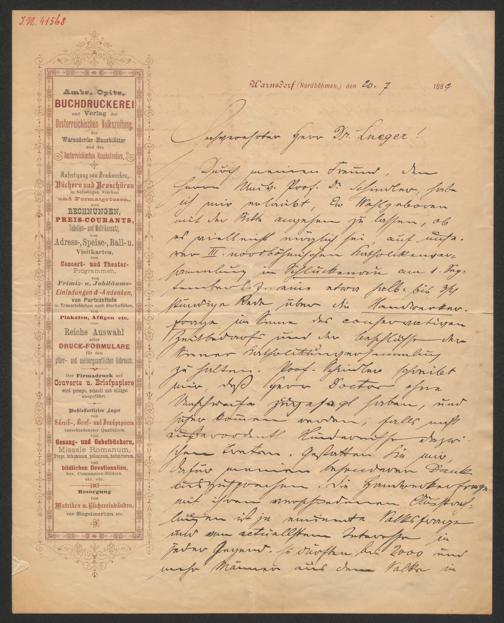 J.N. 41568
Ambr. Opitz,
BUCHDRUCKEREI
und Verlag der
Oesterreichischen Volkszeitung,
der
Warnsdorfer Hausblätter
und des
Oesterreichischen Hauskalenders,
Anfertigung von Druckwerken,
Büchern und Broschüren
in beliebiger Stärke
und Formatgrösse,
von
RECHNUNGEN,
PREIS-COURANTS,
Tabellen- und
von
Adress-, Speise-, Ball- u.
Visitkarten,
von
Concert- und Theater-
Programmen,
von
Primiz- u. Jubiläums-
Einladungen & Andenken,
von Partezetteln
u. Trauerbildchen nach Sterbefällen,
von
Plakaten, Affigen etc.
Reiche Auswahl
aller
DRUCK-FORMULARE
für den
pfarr- und amtlichen Gebrauch.
Der Firmadruck auf
Couverts u. Briefpapiere
wird prompt, schnell und billigst
ausgeführt.
Bestsortirtes Lager
von
Schreib-, Brief- und Druckpapieren
verschiedenster Qualitäten,
von
Gesang- und Gebetbüchern,
Missale Romanum,
von
bildlichen Devotionalien,
etc. etc.
Besorgung
von
Matriken u. Büchereinbänden,
von Siegelmarken etc.
Warnsdorf (Nordböhmen,) den 20. 7 1889
Hochverehrter Herr Dr. Lueger!
Durch meinen Freund, den
Herrn Univ. Prof. Dr. Schindler, habe
ich mir erlaubt, Euer Wohlgeboren
mit der Bitte angehen zu lassen, ob
es vielleicht möglich sei, auf unse-
rer III. nordböhmischen Katholikenver-
sammlung in Schluckenau am 1. Sep-
tember l. J. eine etwa halb- bis
stündige Rede über die Handwerker-
frage im Sinne des conservativen
und der Beschlüsse der
Wiener Katholikenversammlung
zu halten. Prof. Schindler schreibt
mir, daß Herr Doctor ohne
zugesagt haben, und
kommen werden, falls nicht
Hindernisse dazwi-
schen treten. Gestatten Sie mir,
dafür meinen besonderen Dank
auszusprechen. Die Handwerkerfrage
mit ihren verschiedenen
ist ja eminente Volksfrage
und von actuellstem Interesse in
jeder Gegend. Es dürften bei 2000 und
mehr Männer aus dem Volke in